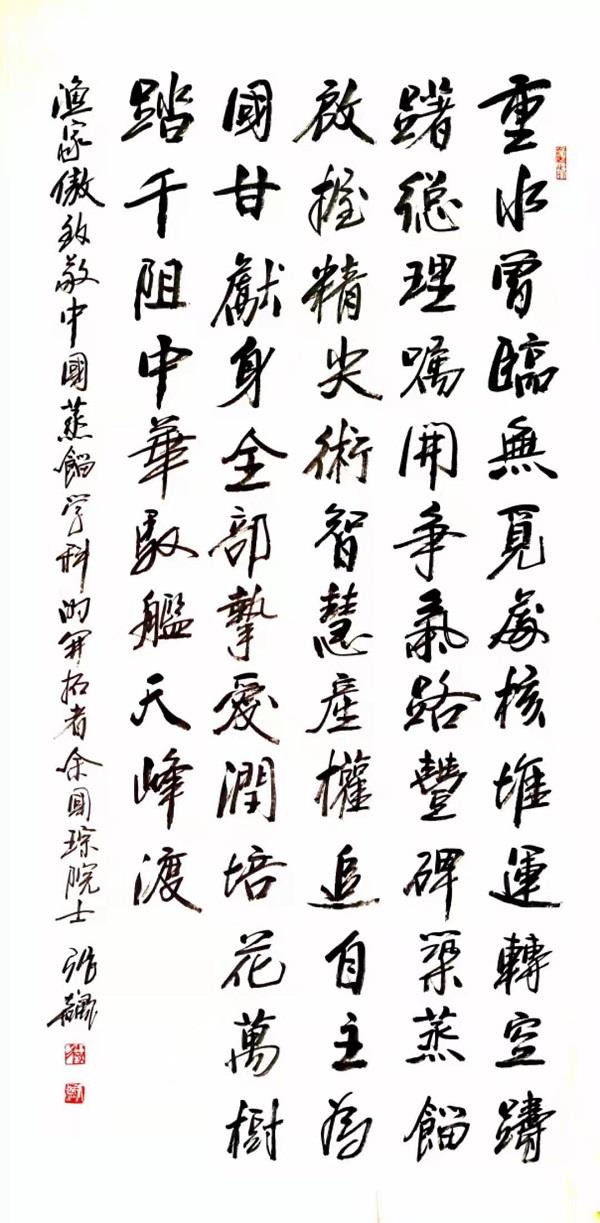 重水曾臨無覓處核堆運轉空躊
躇總理囑開爭氣路豐碑築蒸餾
啟握精尖術智慧產權追自主為
國甘獻身全部摯愛潤培花萬樹
踏千阻中華馭艦天峰渡
漁家傲致敬中國蒸餾学科的開拓者余國琮院士